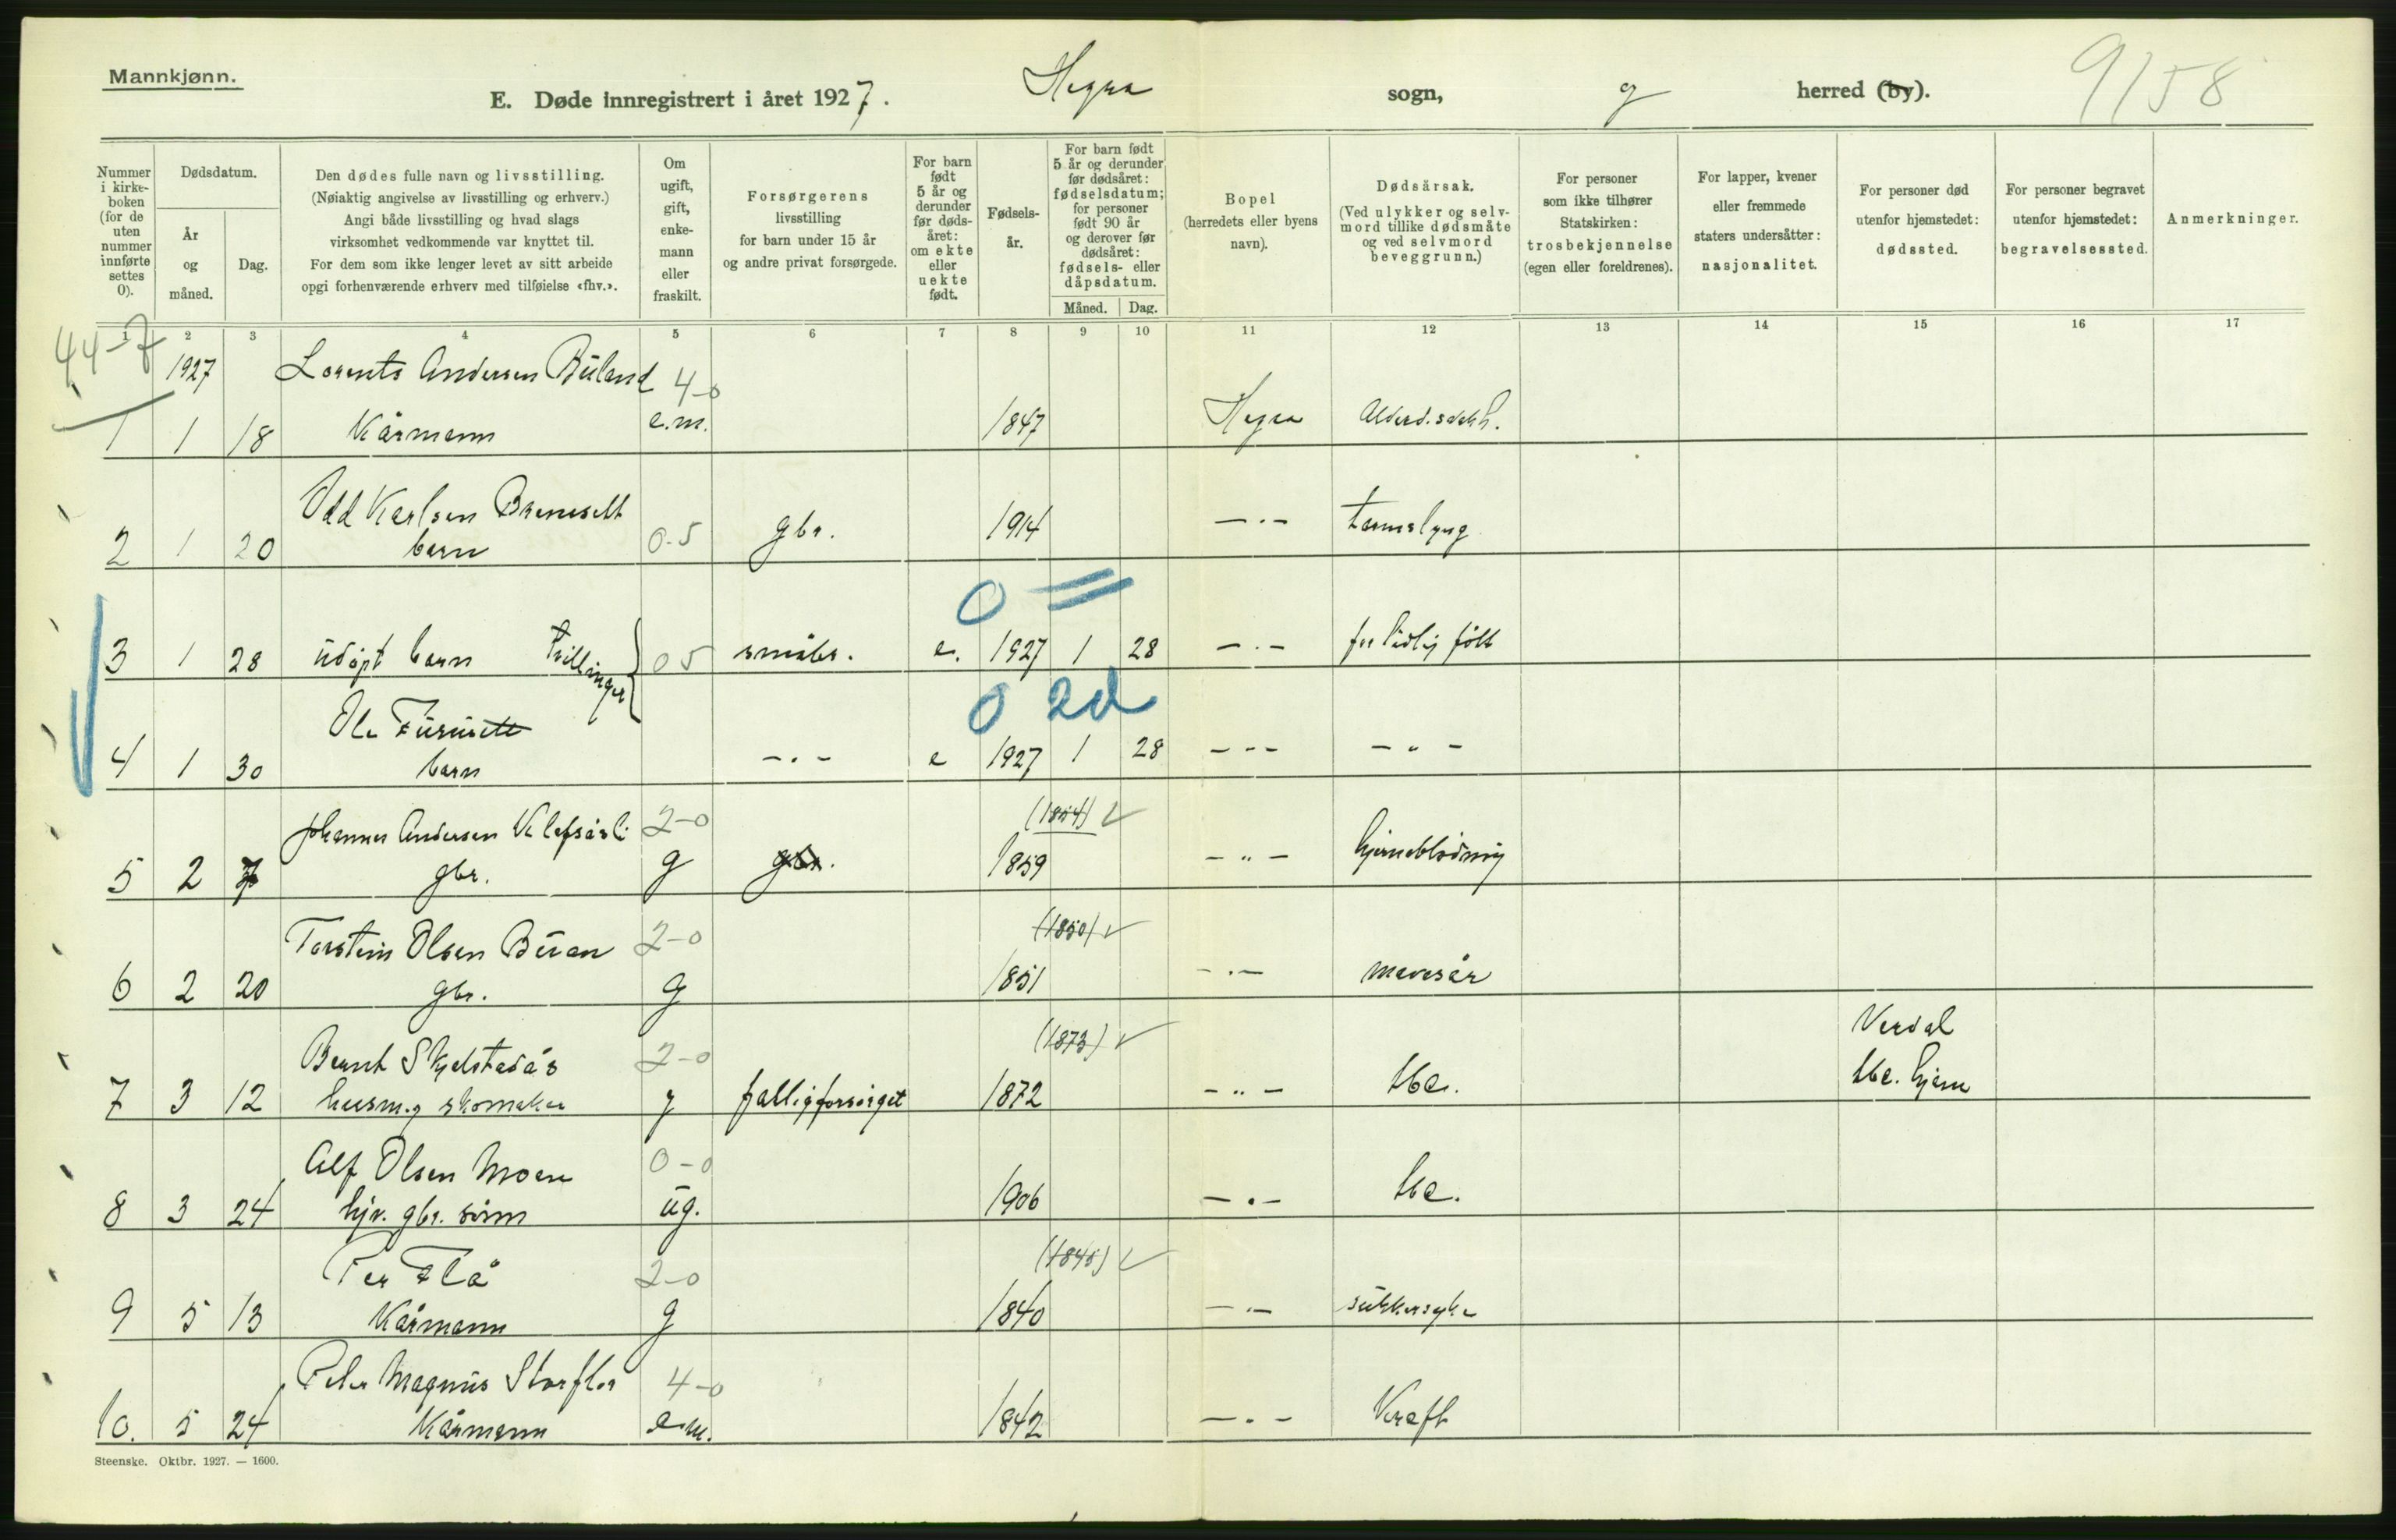 Mannkjønn.
E. Døde innregistrert i året 1927. Hegra sogn, g herred (by).
9/58
Nummer i kirkeboken (for de uten nummer innførte settes 0).
Dødsdatum.
År og måned.
Dag.
Den dødes fulle navn og livsstilling.
(Nøiaktig angivelse av livsstilling og erhverv.)
Angi både livsstilling og hvad slags
virksomhet vedkommende var knyttet til.
For dem som ikke lenger levet av sitt arbeide
opgi forhenværende erhverv med tilføielse «fhv.».
Om ugift, gift, enkemann eller fraskilt.
Forsørgerens
livsstilling
for barn under 15 år
og andre privat forsørgede.
For barn født 5 år og derunder før dødsåret: om ekte eller uekte født.
Fødselsår.
For barn født 5 år og derunder før dødsåret: fødselsdatum; for personer født 90 år og derover før dødsåret: fødsels- eller dåpsdatum.
Måned. Dag.
Bopel
(herredets eller byens
navn).
Dødsårsak.
(Ved ulykker og selvmord tillike dødsmåte og ved selvmord beveggrunn.)
For personer
som ikke tilhører
Statskirken:
trosbekjennelse
(egen eller foreldrenes).
For lapper, kvener
eller fremmede
staters undersåtter:
nasjonalitet.
For personer død
utenfor hjemstedet:
dødssted.
For personer begravet
utenfor hjemstedet:
begravelsessted.
Anmerkninger.
1 2 3 4 5 6 7 8 9 10 11 12 13 14 15 16 17
44-7
1927 Lorents Andersen Buland 4-0
1 1 18 Kårmann e.m. 1847 Hegra Alderd.svakh.
Odd Karlsen
2 1 20 barn 0-5 gbr. 1914 -.- tarmslyng
0 =
3 1 28 udøpt barn tvillinger 0 5 småbr. e. 1927 1 28 -.- for tidlig født
Ole 0 2d
4 1 30 barn -.- e 1927 1 28 -.- -"-
Johannes Andersen 2-0 (1854)
5 2 7 gbr. g gbr. 1859 -"- hjerneblødning
Torstein Olsen Buran 2-0 (1850)
6 2 20 gbr. g 1851 -.- mavesår
Bernt Skjelstadås 2-0 (1873) Verdal
7 3 12 husm. og skomaker g fattigforsørget 1872 -"- tbc. tbc. hjem
Alf Olsen Moen 0-0
8 3 24 hjv. gbr. sønn ug. 1906 -.- tbc.
Per Flå 2-0
9 5 13 Kårmann g 1840 -.- sukkersyke
Peter Magnus Storflor 4-0
10. 5 24 Kårmann e.m. 1842 -.- Kreft
Steenske. Oktbr. 1927. — 1600.